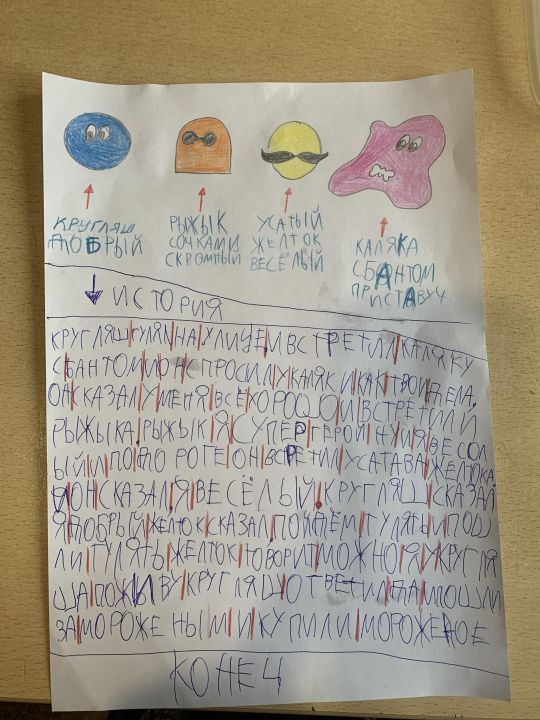 КРУГЛЯШ
ДОБРЫЙ
РЫЖЫК
СОЧКАМИ
СКРОМНЫЙ
УСАТЫЙ
ЖЕЛТОК
ВЕСЁЛЫЙ
КАЛЯКА
СБАНТОМ
ПРИСТАВУЧ
ИСТОРИЯ
КРУГЛЯШ ГУЛЯЛ НА УЛИЦЕ И ВСТРЕТИЛ КАЛЯКУ
СБАНТОМ И ОН СПРОСИЛ УКАЛЯКИ КАК ТВОИ ДЕЛА
ОН СКАЗАЛ У МЕНЯ ВСЁ ХОРОШО И ВСТРЕТИЛИ
РЫЖЫКА РЫЖЫК Я СУПЕР ГЕРОЙ НУ И Я ВЕСОЛ
ЫЙ И ПО ДО РОГЕ ОН ВСРЕТИЛ УСАТАВА ЖЕЛТОКА
И ОН СКАЗАЛ Я ВЕСЁЛЫЙ. КРУГЛЯШ СКАЗАЛ
Я ДОБРЫЙ ЖЕЛТОК СКАЗАЛ ПОЙДЁМ ГУЛЯТЬ И ПОШ
ЛИ ГУЛЯТЬ ЖЕЛТОК ГОВОРИТ МОЖНО Я У КРУГЛЯ
ША ПОЖИВУ КРУГЛЯШ ОТВЕТИЛ ДА ПОШЛИ
ЗА МОРОЖЕНЫМ И КУПИЛИ МОРОЖЕНОЕ
КОНЕЦ